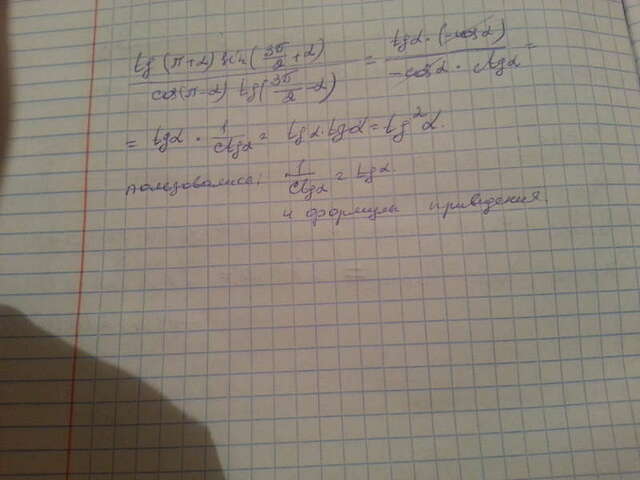 tg(π+α) sin(3π/2+α) / cos(π-α) tg(3π/2-α) = tgα·(-cosα) / -cosα · ctgα =
= tgα · 1/ctgα = tgα·tgα = tg²α.
пользовались: 1/ctgα = tgα.
и формулы приведения.